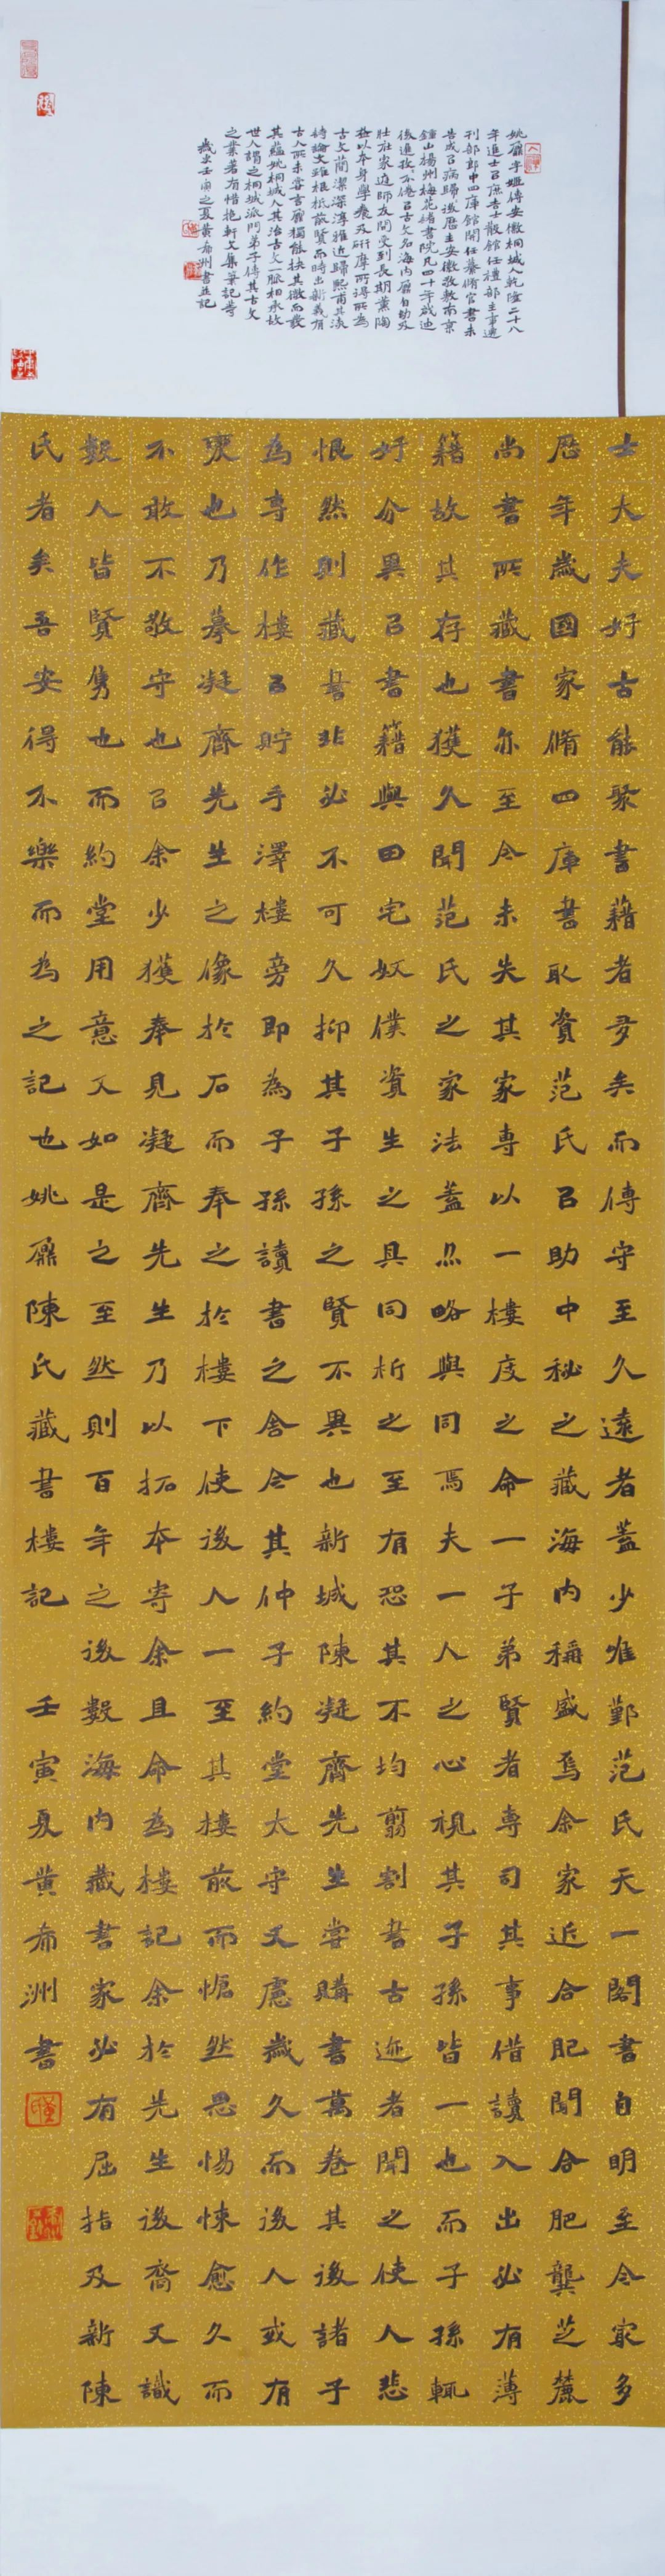 姚鼐字姬傳安徽桐城人乾隆二十八
年進士㠯庶吉士散館任禮部主事遷
刊部郎中四庫館開任纂脩官書未
告成㠯病歸後歷主安徽敬敷南京
鍾山揚州梅花諸書院凡四十年啟迪
後進孜不倦㠯古文名海内鼐自幼及
壯在家庭師友間受到長期薰陶
益以本身學養及研摩所得所為
古文簡潔深淳雅近歸熙甫其流
詩論文雅根柢前賢而時出新義有
古人所未嘗言鼐獨能抉其微而發
其蘊姚桐城人其治古文一脈相承故
世人謂之桐城派門弟子傳其古文
之業著有惜抱軒文集筆記等
歲次壬寅之夏黃希洲書並記
士大夫好古能聚書籍者多矣而傳守至久遠者蓋少唯鄞范氏天一閣書自明至今家多
歷年歲國家脩四庫書取資范氏㠯助中秘之藏海内稱盛焉余家近合肥聞合肥龔芝麓
尚書所藏書亦至今未失其家專以一樓庋之命一子弟賢者專司其事借讀入出必有薄
籍故其存也獲久聞范氏之家法蓋亦略與同焉夫一人之心視其子孫皆一也而子孫輒
好分異㠯書籍與田宅奴僕資生之具同析之至有恐其不均翦割書古迹者聞之使人悲
恨然則藏書非必不可久抑其子孫之賢不異也新城陳凝齊先生嘗購書萬卷其後諸子
為專作樓㠯貯手澤樓旁即為子孫讀書之舍今其仲子約堂太守又慮歲久而後人或有
褻也乃摹凝齊先生之像於石而奉之於樓下使後人一至其樓前而愴然思惕悚愈久而
不敢不敬守也㠯余少獲奉見凝齊先生乃以拓本寄余且命為樓記余於先生後裔又識
數人皆賢雋也而約堂用意又如是之至然則百年之後數海内藏書家必有屈指及新陳
氏者矣吾安得不樂而為之記也姚鼐陳氏藏書樓記 壬寅夏黃希洲書